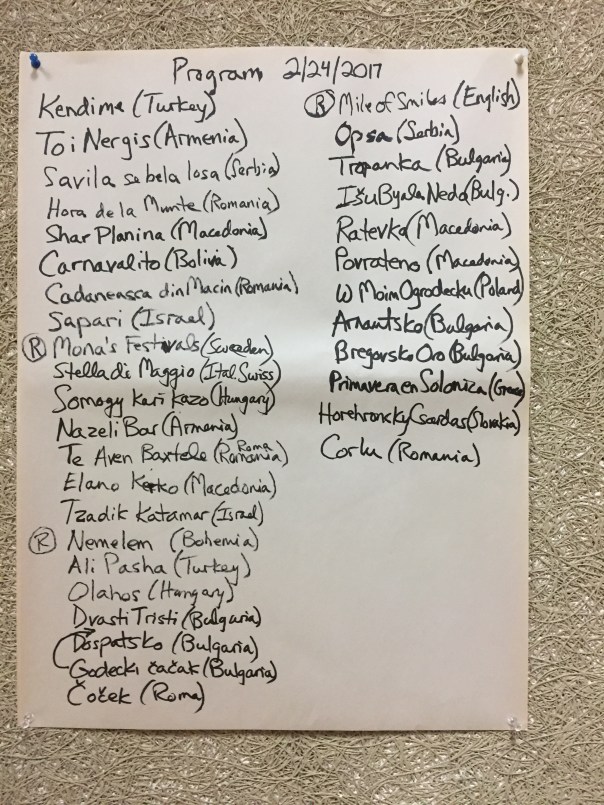 Program 2/24/2017
Kendime (Turkey)
Toi Nergis (Armenia)
Savila se bela losa (Serbia)
Hora de la Munte (Romania)
Shar Planina (Macedonia)
Carnavalito (Bolivia)
Cadaneasca din Macin (Romania)
Sapari (Israel)
R Mona's Festivals (Sweeden)
Stella di Maggio (Ital Swiss)
Somogy Kari Kazo (Hungary)
Nazeli Bar (Armenia)
Te Aven Baxtele (Romania) Roma
Elano Kerko (Macedonia)
Tzadik Katamar (Israel)
R Nemelem (Bohemia)
Ali Pasha (Turkey)
Olahos (Hungary)
Dvasti Tristi (Bulgaria)
Dospatsko (Bulgaria)
Godecki čačak (Bulgaria)
Čoček (Roma)
R Mile of Smiles (English)
Opsa (Serbia)
Tropanka (Bulgaria)
Išu Byala Neda (Bulg.)
Ratevka (Macedonia)
Povrateno (Macedonia)
W Moim Ogrodecku (Poland)
Arnautsko (Bulgaria)
Bregovsko Oro (Bulgaria)
Primavera en Solonica (Greece)
Horehronsky Csardas (Slovakia)
Corlu (Romania)